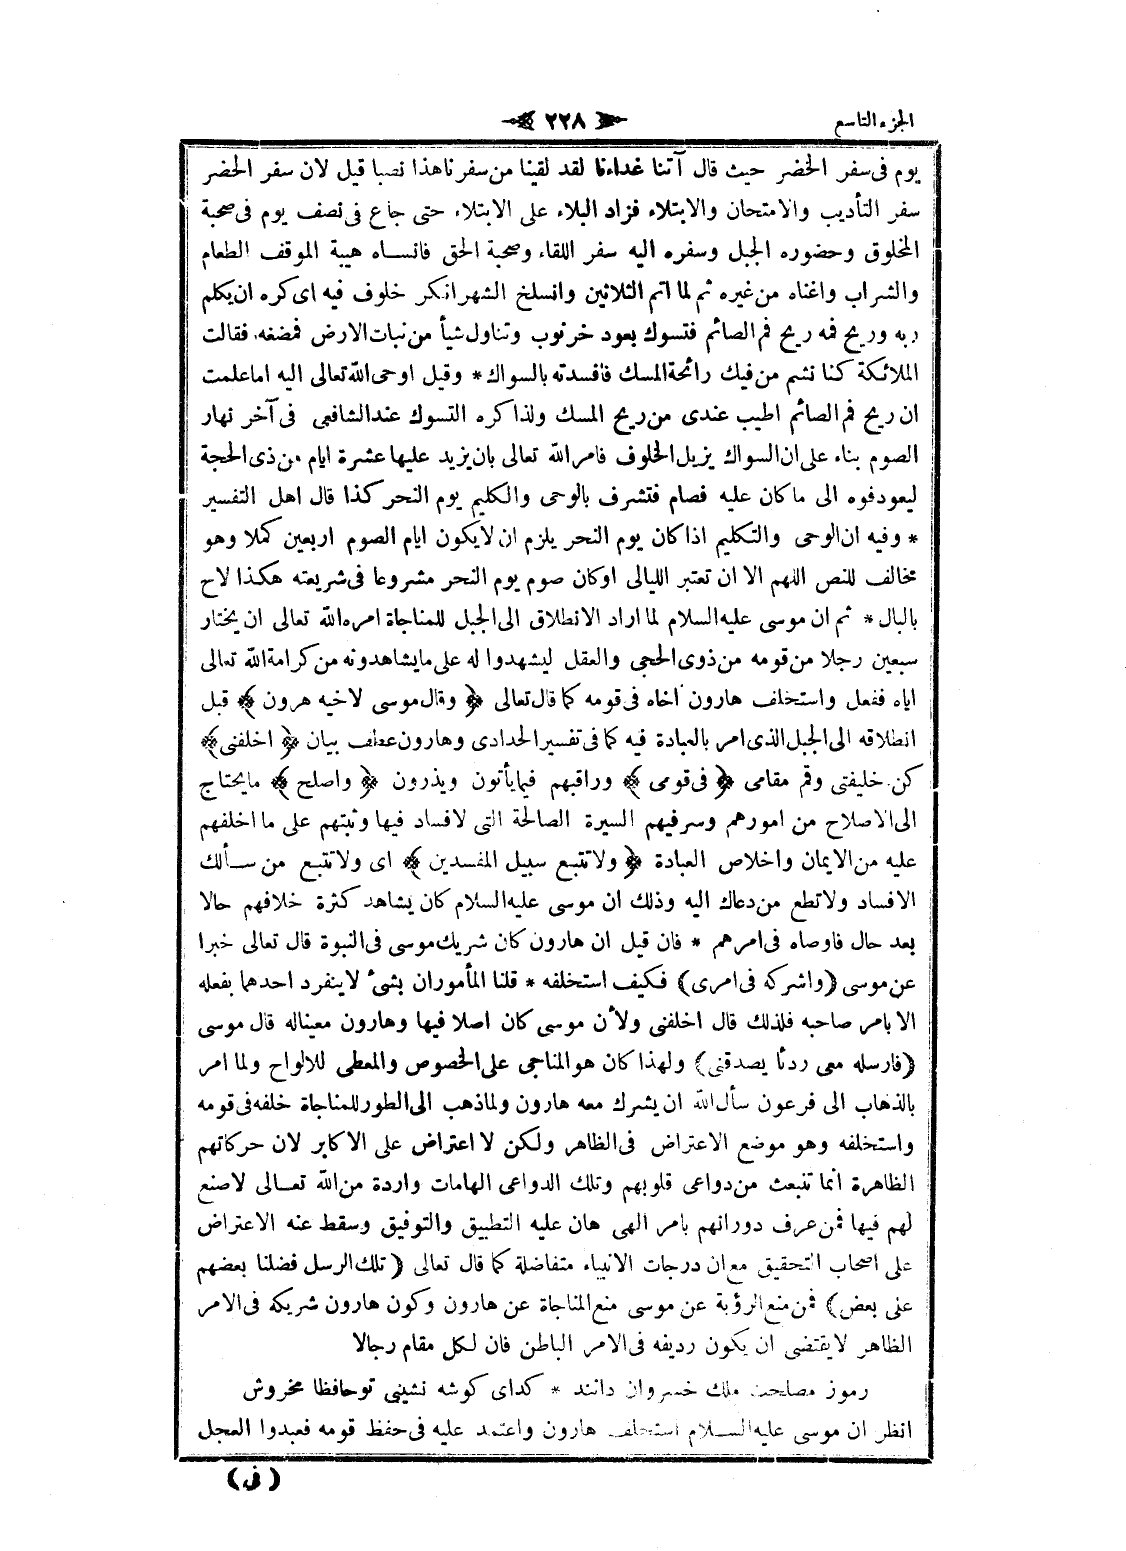 الجزء التاسع
٢٢٨
يوم فى سفر الخضر حيث قال آتنا غداءنا لقد لقينا من سفرنا هذا نصبا قيل لان سفر الخضر
سفر التأديب والامتحان والابتلاء فزاد البلاء على الابتلاء حتى جاع فى نصف يوم فى صحبة
المخلوق وحضوره الجبل وسفره اليه سفر اللقاء وصحبة الحق فانساه هيبة الموقف الطعام
والشراب واغناه من غيره ثم لما اتم الثلاثين وانسلخ الشهر انكر خلوف فيه اى كره ان يكلم
ربه وريح فمه ريح فم الصائم فتسوك بعود خرنوب وتناول شيأ من نبات الارض فمضغه فقالت
الملائكة كنا نشم من فيك رائحة المسك فافسدته بالسواك * وقيل اوحى الله تعالى اليه اما علمت
ان ريح فم الصائم اطيب عندى من ريح المسك ولذا كره التسوك عند الشافعى فى آخر نهار
الصوم بناء على ان السواك يزيل الخلوف فامر الله تعالى بان يزيد عليها عشرة ايام من ذى الحجة
ليعود فوه الى ما كان عليه فصام فتشرف بالوحى والكليم يوم النحر كذا قال اهل التفسير
* وفيه ان الوحى والتكليم اذا كان يوم النحر يلزم ان لا يكون ايام الصوم اربعين كملا وهو
مخالف للنص اللهم الا ان تعتبر الليالى او كان صوم يوم النحر مشروعا فى شريعته هكذا لاح
بالبال * ثم ان موسى عليه السلام لما اراد الانطلاق الى الجبل للمناجاة امره الله تعالى ان يختار
سبعين رجلا من قومه من ذوى الحجى والعقل ليشهدوا له على ما يشاهدونه من كرامة الله تعالى
اياه ففعل واستخلف هارون اخاه فى قومه كما قال تعالى ﴿ وقال موسى لاخيه هرون ﴾ قبل
انطلاقه الى الجبل الذى امر بالعبادة فيه كما فى تفسير الحدادى وهارون عطف بيان ﴿ اخلفنى ﴾
كن خليفتى وقم مقامى ﴿ فى قومى ﴾ وراقبهم فيما يأتون ويذرون ﴿ واصلح ﴾ ما يحتاج
الى الاصلاح من امورهم وسر فيهم السيرة الصالحة التى لا فساد فيها وثبتهم على ما اخلفهم
عليه من الايمان واخلاص العبادة ﴿ ولا تتبع سبيل المفسدين ﴾ اى ولا تتبع من سألك
الافساد ولا تطع من دعاك اليه وذلك ان موسى عليه السلام كان يشاهد كثرة خلافهم حالا
بعد حال فاوصاه فى امرهم * فان قيل ان هارون كان شريك موسى فى النبوة قال تعالى خبرا
عن موسى (واشركه فى امرى) فكيف استخلفه * قلنا المأموران بشئ لا ينفرد احدهما بفعله
الا بامر صاحبه فلذلك قال اخلفنى ولأن موسى كان اصلا فيها وهارون معيناله قال موسى
(فارسله معى ردئا يصدقنى) ولهذا كان هو المناجى على الخصوص والمعطى للالواح ولما امر
بالذهاب الى فرعون سأل الله ان يشرك معه هارون ولما ذهب الى الطور للمناجاة خلفه فى قومه
واستخلفه وهو موضع الاعتراض فى الظاهر ولكن لا اعتراض على الاكابر لان حركاتهم
الظاهرة انما تنبعث من دواعى قلوبهم وتلك الدواعى الهامات واردة من الله تعالى لا صنع
لهم فيها فمن عرف دورانهم بامر الهى هان عليه التطبيق والتوفيق وسقط عنه الاعتراض
على اصحاب التحقيق مع ان درجات الانبياء متفاضلة كما قال تعالى (تلك الرسل فضلنا بعضهم
على بعض) فمن منع الرؤية عن موسى منع المناجاة عن هارون وكون هارون شريكه فى الامر
الظاهر لا يقتضى ان يكون رديفه فى الامر الباطن فان لكل مقام رجالا
رموز مصلحت ملك خسروان دانند * كداى كوشه نشينى تو حافظا مخروش
انظر ان موسى عليه السلام استخلف هارون واعتمد عليه فى حفظ قومه فعبدوا العجل
(فى)